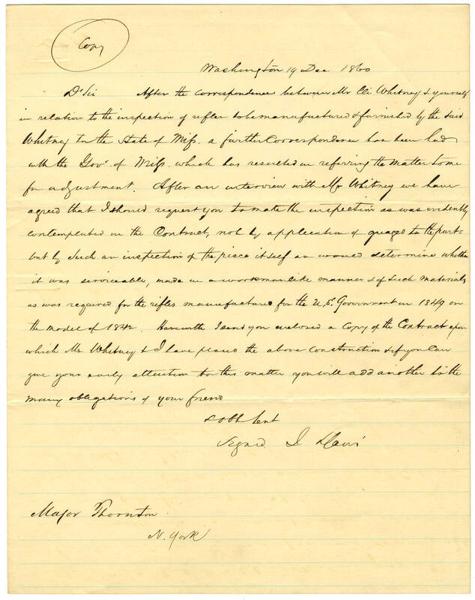 Copy
Washington 19 Dec 1860
Dr Sir After the correspondence between Mr Eli Whitney & yourself
in relation to the inspection of rifles to be manufactured & furnished by the said
Whitney to the State of Miss. a further correspondence has been had
with the Govr of Miss, which has resulted in referring the matter to me
for adjustment. After an interview with Mr Whitney we have
agreed that I should request you to make the inspection as was evidently
contemplated in the Contract, not by application of guages to the parts
but by such an inspection of the piece itself as would determine whether
it was serviceable, made in a workmanlike manner & of such materials
as was required for the rifles manufactured for the U.S. Government in 1849 on
the model of 1842. Herewith I send you enclosed a Copy of the Contract upon
which Mr Whitney & I have placed the above construction & if you can
give your early attention to this matter you will add another to the
many obligations of your friend
& obt Servt
Signed J Davis
Major Thornton
N. York